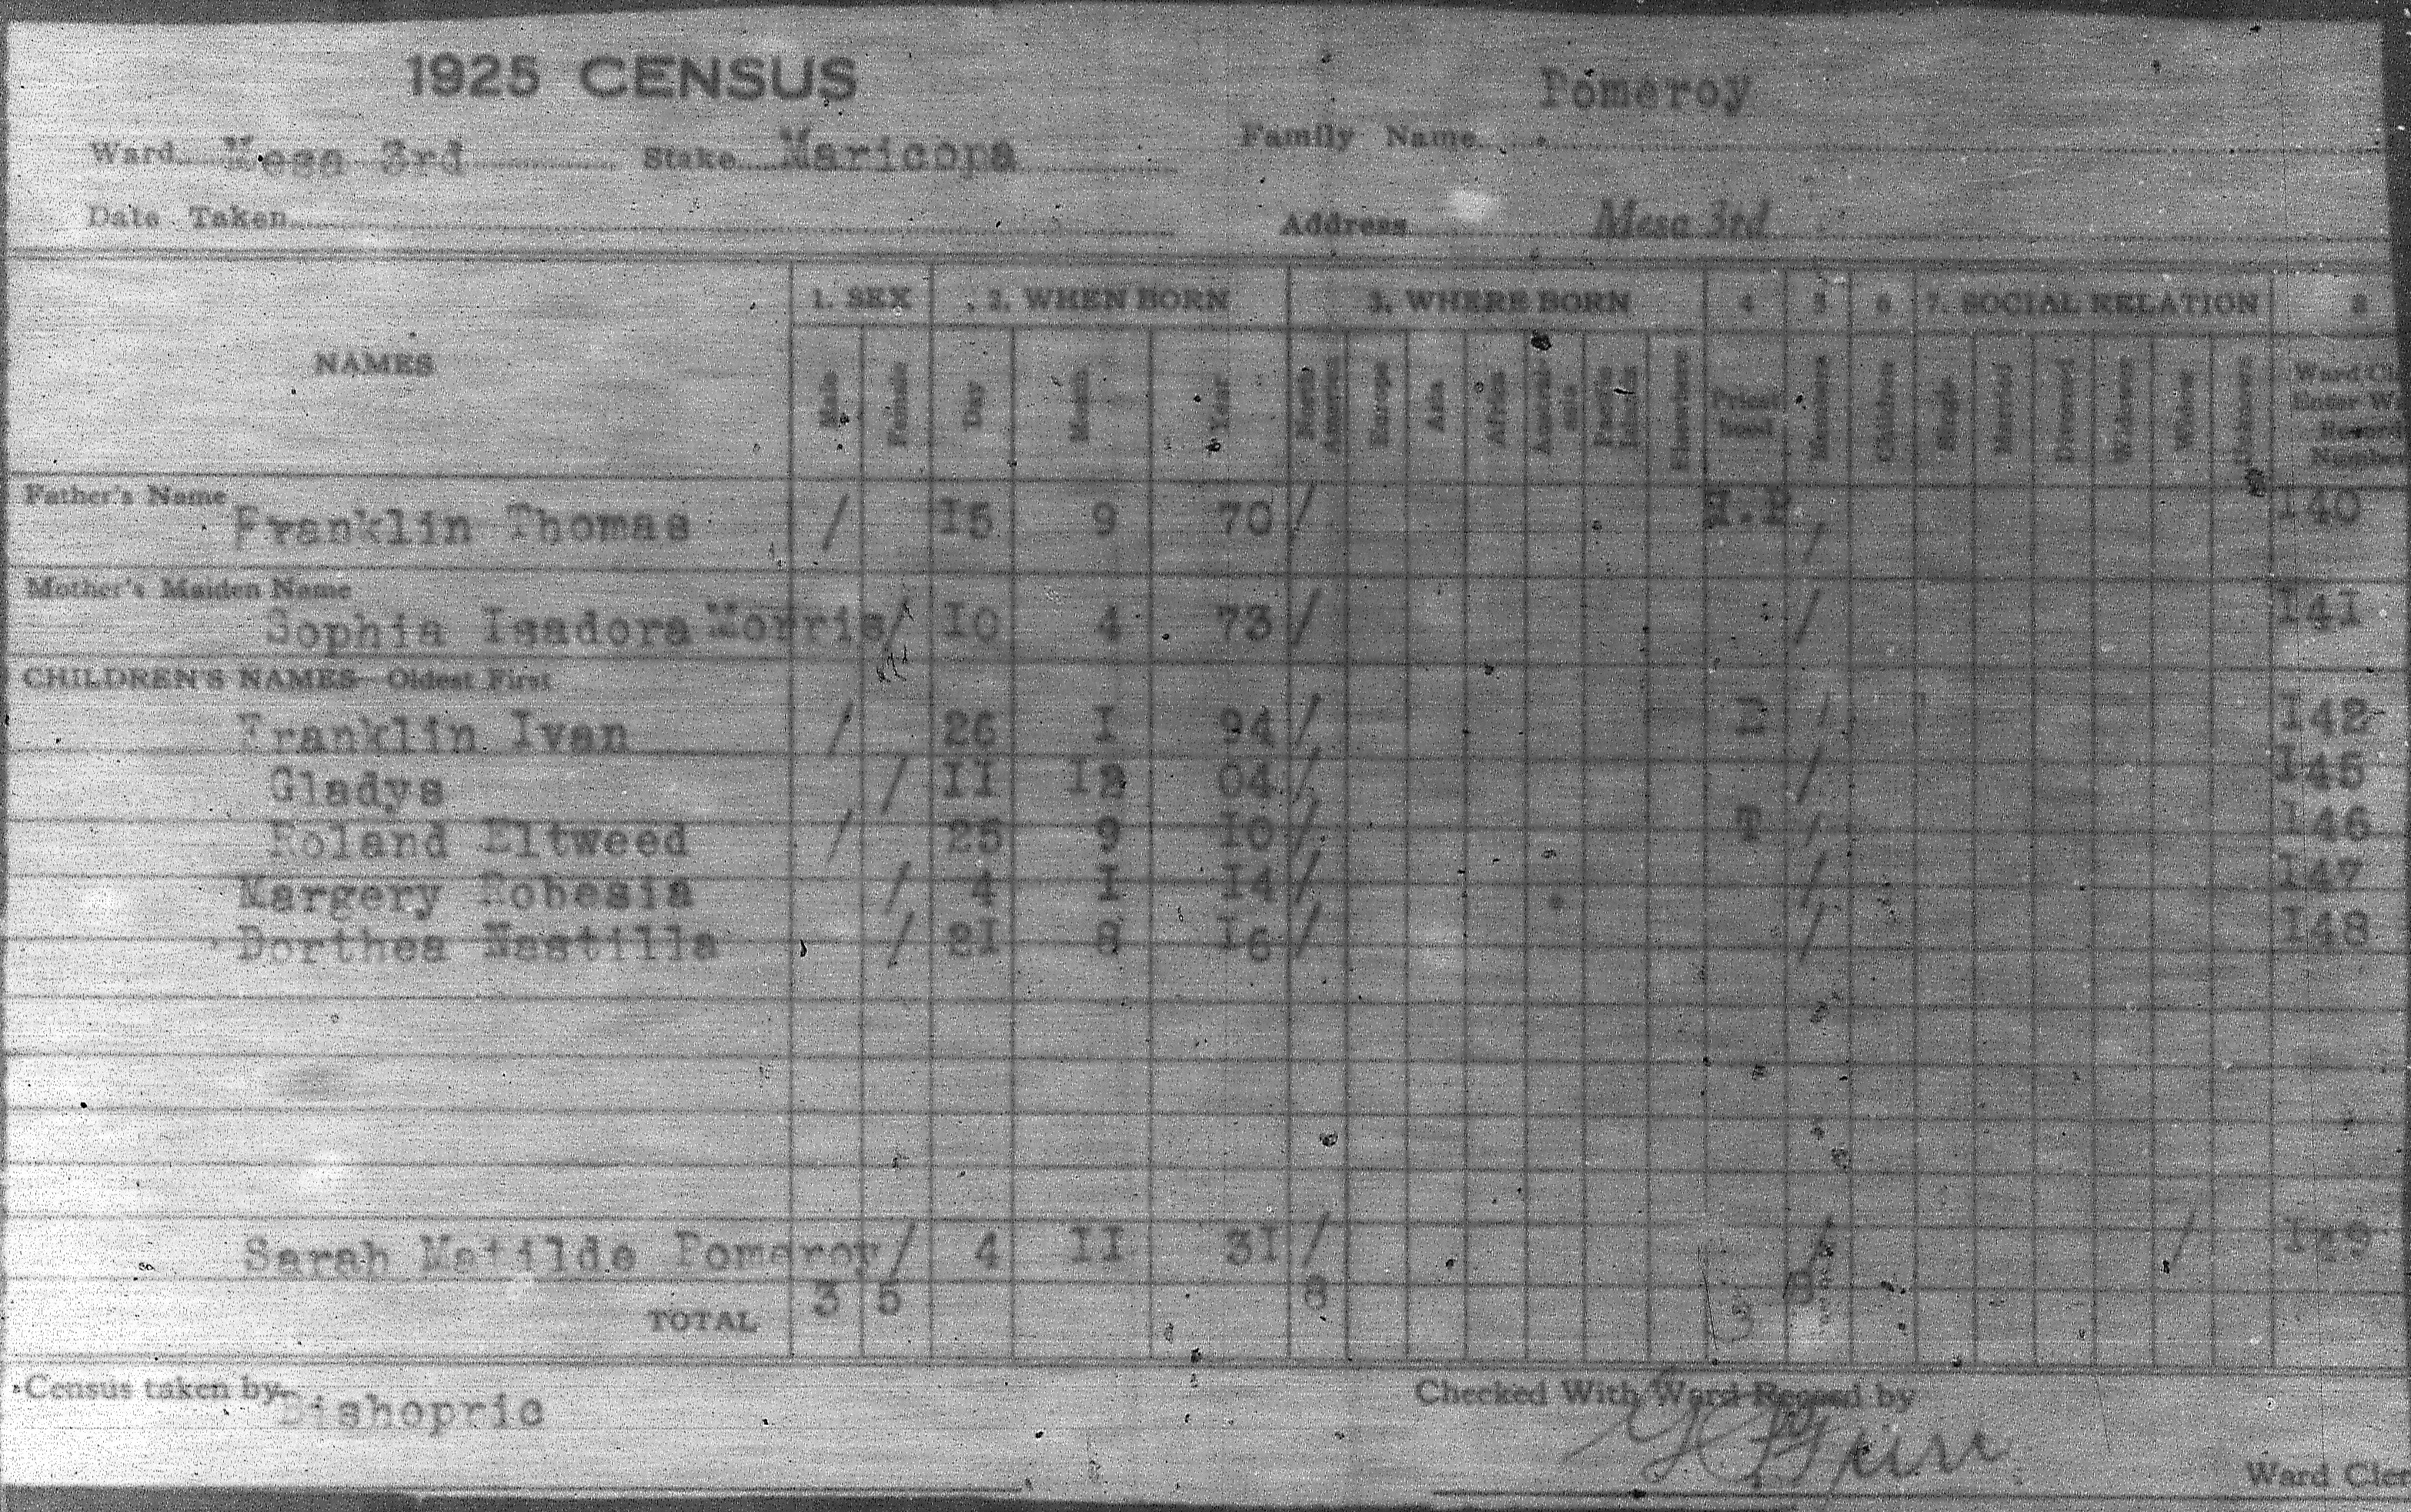 1925 CENSUS
Pomeroy
Ward Mesa 3rd Stake Maricopa Family Name
Date Taken Address Mesa 3rd
1. SEX 2. WHEN BORN 3. WHERE BORN 4 5 6 7. SOCIAL RELATION 8
NAMES Male Female Day Month Year North America Europe Asia Africa Pacific Priest hood Children Single Married Divorced Widower Widow Unknown
Ward
Enter W
Record
Number
Father's Name
Franklin Thomas / 15 9 70 / H.P. / 140
Mother's Maiden Name
Sophia Isadora Morris / 10 4 73 / / 141
CHILDREN'S NAMES—Oldest First
Franklin Ivan / 26 I 94 / / 142
Gladys / II I2 04 / / 145
Roland Eltweed / 25 9 I0 / T / 146
Margery Rohesia / 4 I I4 / / 147
Dorthea Mastilla / 2I 8 I6 / / 148
Sarah Matilda Pomeroy / 4 II 3I / / /
TOTAL 3 5 8 3 8
Census taken by Bishopric
Checked With Ward Record by
Ward Cler